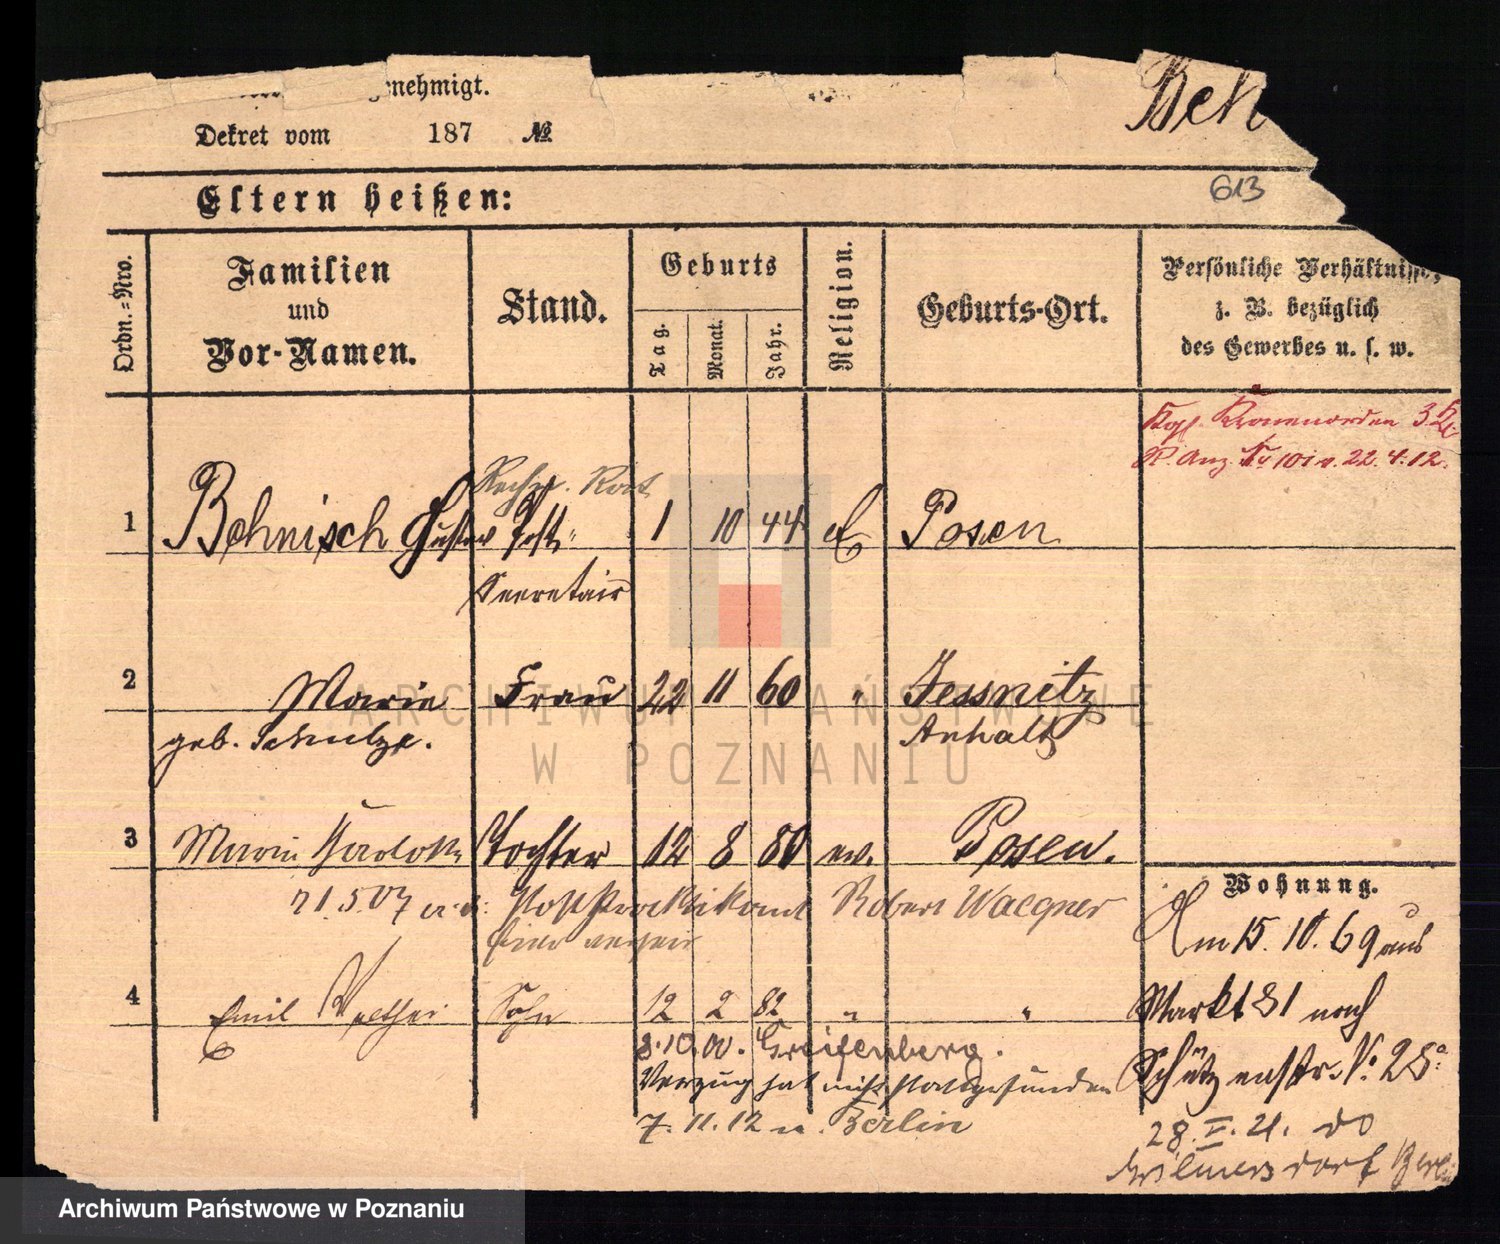 nehmigt.
Dekret vom 187 №
Beh
613
Eltern heißen:
Ordn.=Nro.
Familien
und
Vor-Namen.
Stand.
Geburts
Tag.
Monat.
Jahr.
Religion.
Geburts-Ort.
Persönliche Verhältnisse,
z. B. bezüglich
des Gewerbes u. s. w.
Kgl. Kronenorden 3 Kl.
R. Anz. 101 v. 22.4.12.
Rechn. Rat
1 Behnisch Gustav Post- 1 10 44 Posen
Secretair
2 Marie Frau 22 11 60 " Jessnitz
geb. Schulze. Anhalt
3 Marie Tochter 12 8 80 ev. Posen.
Wohnung.
21.5.07 Postpraktikant Robert Waegner
Am 15. 10. 69 aus
4 Emil Sohn 12 2 82 " "
Markt 81 nach
8.10.00. Greifenberg.
Schützenstr. 28a
Verzug hat nicht stattgefunden
7.11.12 n. Berlin
28. V. 21.
Wilmersdorf Berl
ARCHIWUM PAŃSTWOWE
W POZNANIU
Archiwum Państwowe w Poznaniu